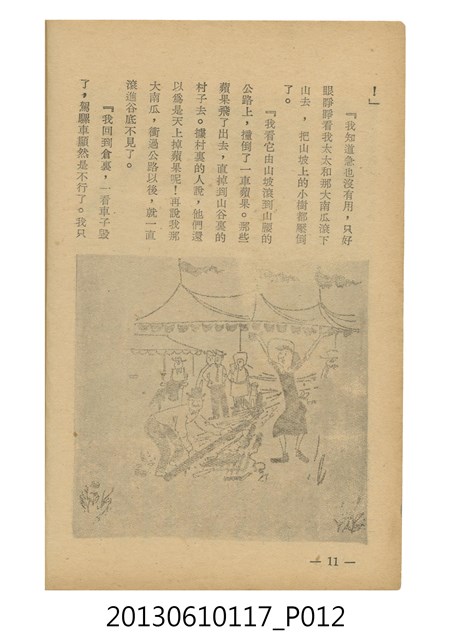 ！」
『我知道急也沒有用，只好
眼睜睜看我太太和那大南瓜滾下
山去，把山坡上的小樹都壓倒
了。
『我看它由山坡滾到山腰的
公路上，撞倒了一車蘋果。那些
蘋果飛了出去，直掉到山谷裏的
村子去。據村裏的人說，他們還
以爲是天上掉蘋果呢！再說我那
大南瓜，衝過公路以後，就一直
滾進谷底不見了。
『我回到倉裏，一看車子毀
了，駕騾車顯然是不行了。我只
— 11 —
20130610117_P012